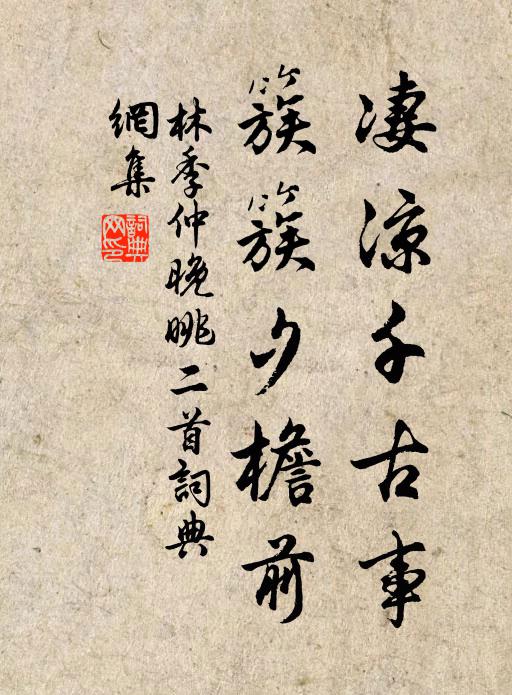 凄涼千古事
簇簇夕檐前
林季仲晚眺二首詞典
網集
詞典
网印